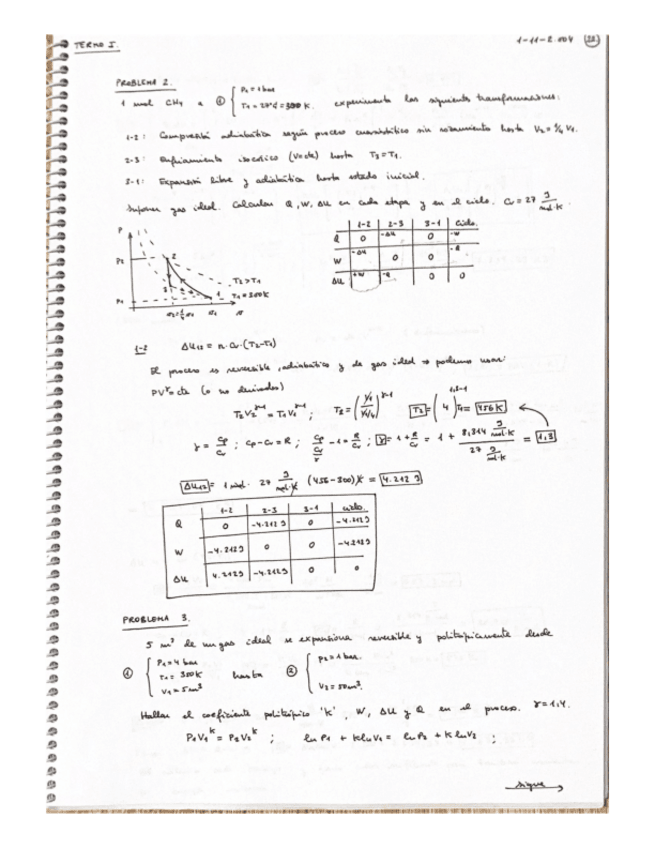 TERMO I.
1-11-2.004
PROBLEMA 2.
1 mol CH4 a ① { P1 = 1 bar
T1 = 27ºC = 300 K. experimenta las siguientes transformaciones:
1-2: Compresión adiabática según proceso cuasiestático sin rozamiento hasta V2 = 1/4 V1.
2-3: Enfriamiento isocórico (V=cte) hasta T3 = T1.
3-1: Expansión libre y adiabática hasta estado inicial.
Suponer gas ideal. Calcular Q, W, ΔU en cada etapa y en el ciclo. Cv = 27 J/mol·K
1-2 2-3 3-1 Ciclo.
Q 0 -ΔU 0 -W
W -ΔU 0 0 -Q
ΔU +W -Q 0 0
P
P2 2
3 T2>T1
P1 1 T1=300K
v2=1/4 v1 v1 v
1-2 ΔU12 = n·Cv·(T2-T1)
El proceso es reversible, adiabático y de gas ideal ⇒ podemos usar:
PV^γ = cte (o sus derivados)
T2V2^γ-1 = T1V1^γ-1 ; T2 = (V1/V1/4)^γ-1 T2 = (4)^1,3-1 T1 = 456K
γ = Cp/Cv ; Cp-Cv = R ; Cp/Cv - 1 = R/Cv ; γ = 1 + R/Cv = 1 + 8,314 J/mol·K / 27 J/mol·K = 1,3
γ
ΔU12 = 1 mol · 27 J/mol·K (456-300)K = 4.212 J
1-2 2-3 3-1 ciclo.
Q 0 -4.212 J 0 -4.212 J
W -4.212 J 0 0 -4.212 J
ΔU 4.212 J -4.212 J 0 0
PROBLEMA 3.
5 m³ de un gas ideal se expansiona reversible y politrópicamente desde
① { P1 = 4 bar
T1 = 350K
V1 = 5 m³
hasta ② { P2 = 1 bar.
V2 = 50 m³.
Hallar el coeficiente politrópico 'K', W, ΔU y Q en el proceso. γ = 1,4.
P1V1^K = P2V2^K ; ln P1 + K ln V1 = ln P2 + K ln V2 ;
sigue